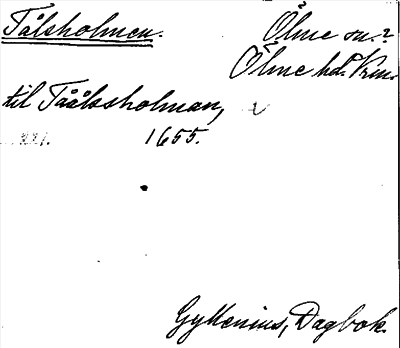 Tålsholmen. Ölme sn.?
Ölme hd. Vrm.
til Taålssholman,
1655.
Gyllenius, Dagbok.